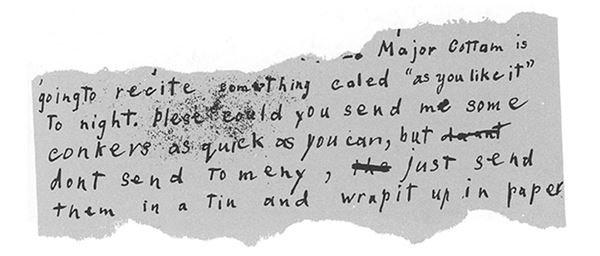 Major Cottam is
going To recite something caled "as you like it"
To night. plese could you send me some
conkers as quick as you can, but
dont send To meny, just send
them in a Tin and wrapit up in paper